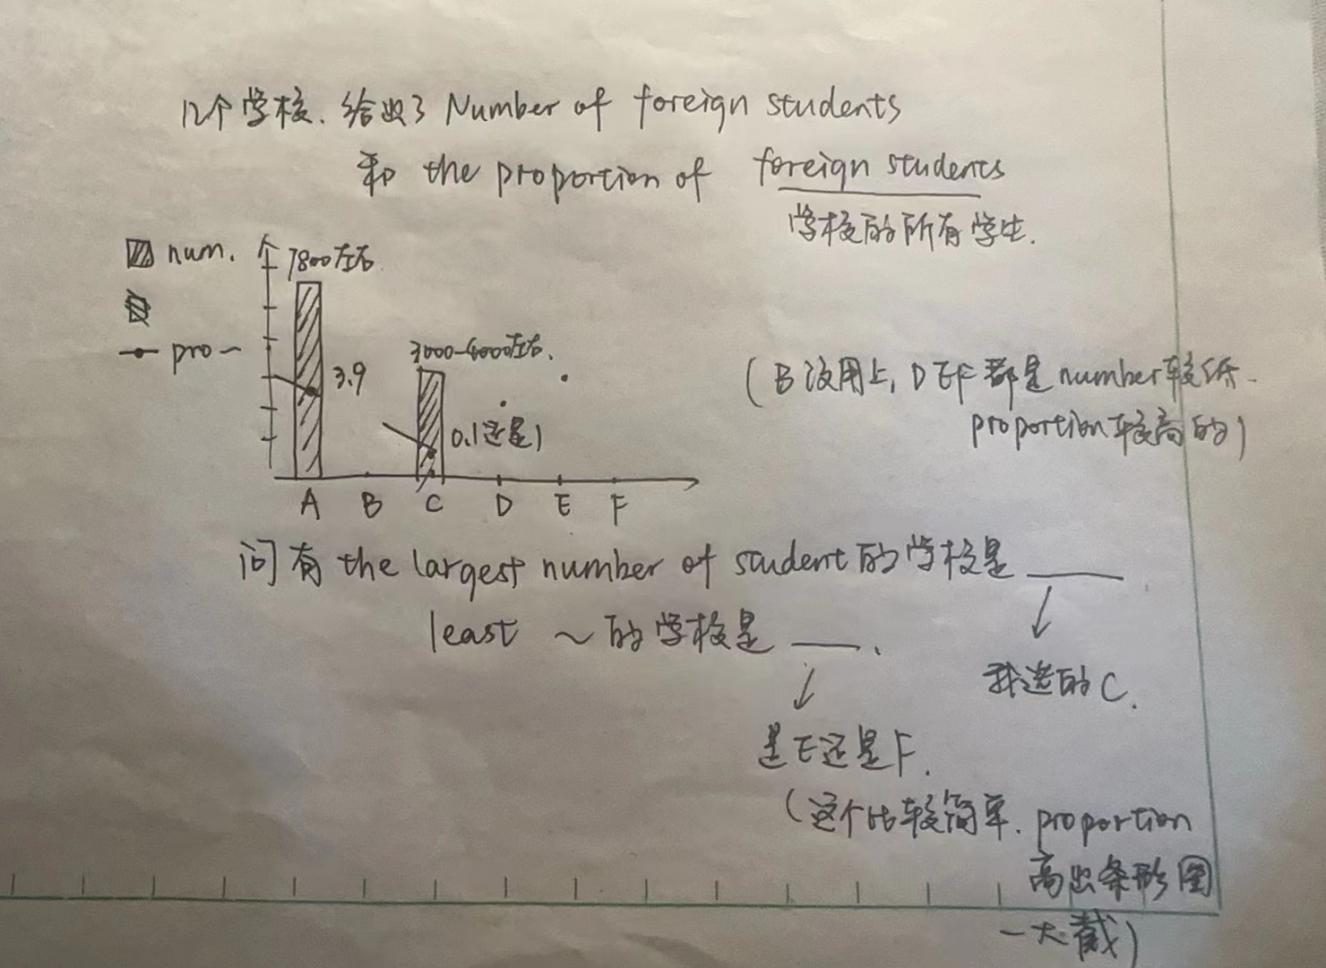 几个学校.给出了Number of foreign students
和 the proportion of foreign students
学校的所有学生.
num. 7800左右
pro~
3.9
3000-4000左右.
0.1还是1
(B没用上, DEF都是number较低.
proportion较高的)
A B C D E F
问有the largest number of student的学校是____
least ~的学校是____.
我选的C.
是E还是F.
(这个比较简单. proportion
高出条形图
一大截)